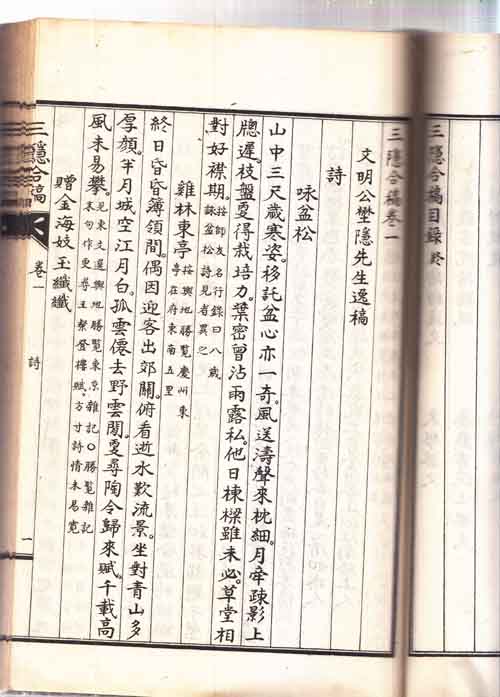 三隱合稿目錄 終
三隱合稿卷一
文明公埜隱先生逸稿
詩
詠盆松
山中三尺歲寒姿。移託盆心亦一奇。風送濤聲來枕細。月牽疎影上
牕遲。枝盤更得栽培力。葉密曾沾雨露私。他日棟樑雖未必。草堂相
對好襟期。按師友名行錄曰八歲詠盆松詩見者異之
雞林東亭 按輿地勝覽慶州東亭在府東南五里
終日昏昏簿領間。偶因迎客出郊關。俯看逝水歎流景。坐對青山多
厚顏。半月城空江月白。孤雲僊去野雲閒。更尋陶令歸來賦。千載高
風未易攀。見東文選輿地勝覽東京雜記○勝覽雜記末句作更尋王粲登樓賦。方寸詩情未易寬
贈金海妓玉纖纖
三隱合稿 卷一 詩 一